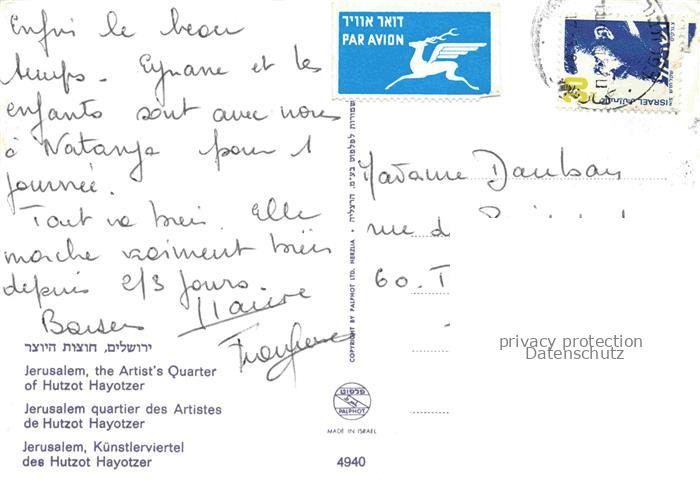 Enfin le beau
temps. Eynane et les
enfants sont avec nous
à Natanya pour 1
journée.
Tout va bien. Elle
marche vraiment bien
depuis 2/3 jours.
Baisers
ירושלים, חוצות היוצר
Jerusalem, the Artist's Quarter
of Hutzot Hayotzer
Jerusalem quartier des Artistes
de Hutzot Hayotzer
Jerusalem, Künstlerviertel
des Hutzot Hayotzer
דואר אוויר
PAR AVION
COPYRIGHT BY PALPHOT LTD. HERZLIA
פלפוט
PALPHOT
MADE IN ISRAEL
4940
ISRAEL
Madame
rue d
60. T
privacy protection
Datenschutz